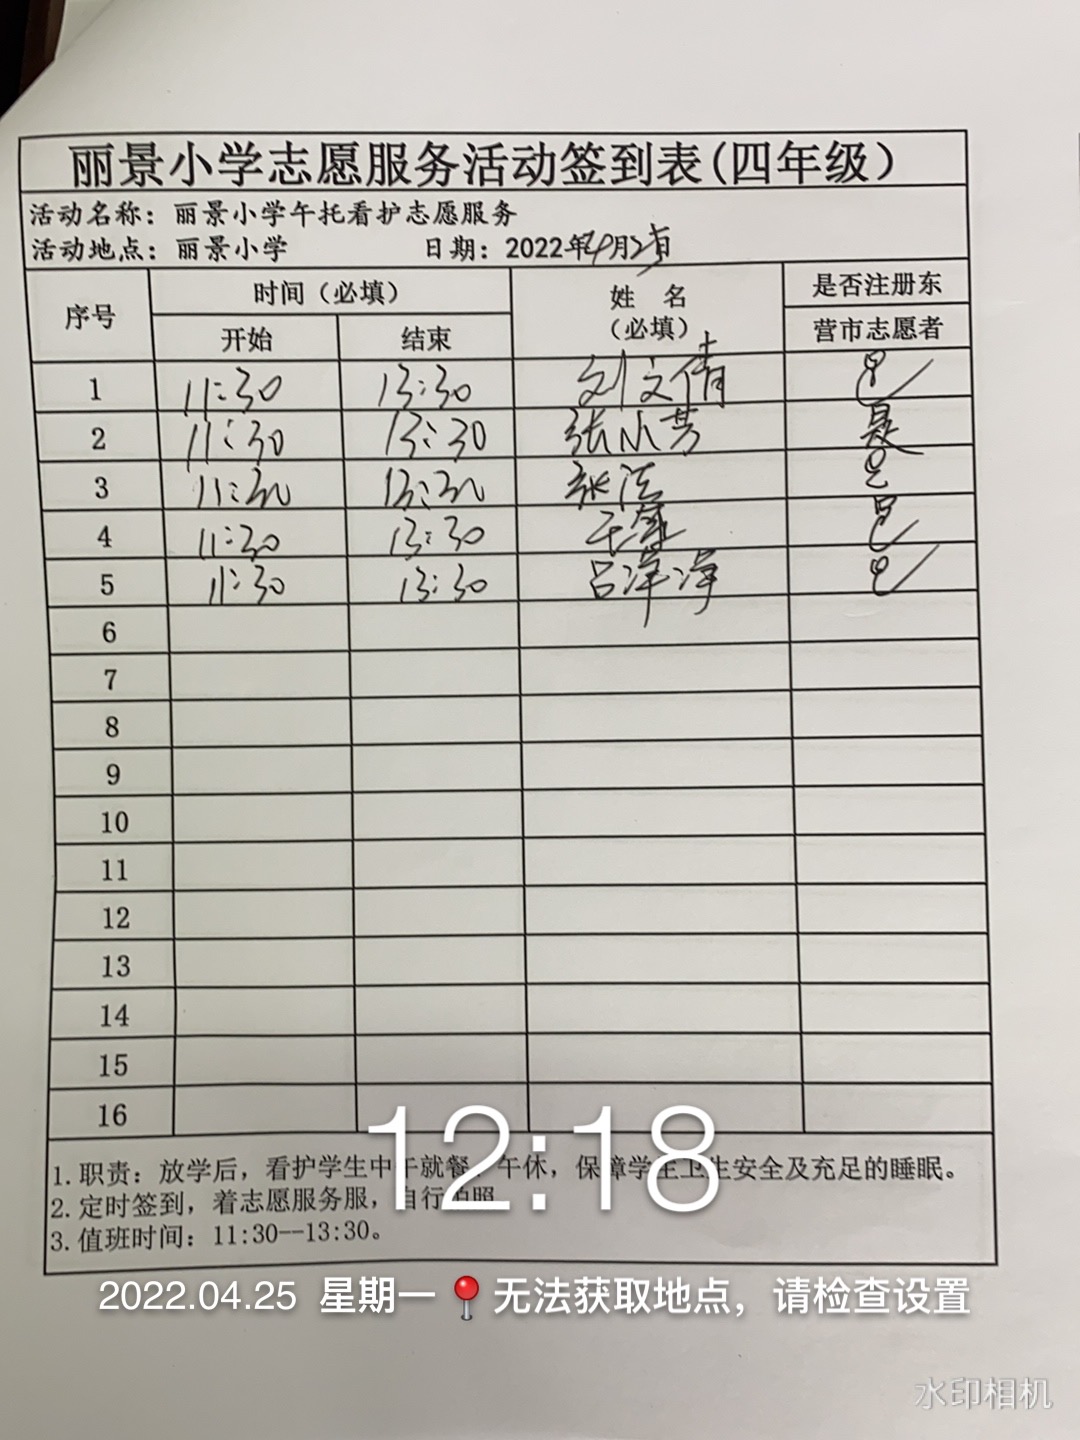 丽景小学志愿服务活动签到表(四年级)
活动名称：丽景小学午托看护志愿服务
活动地点：丽景小学 日期：2022年4月25日
序号 时间（必填） 姓 名（必填） 是否注册东营市志愿者
开始 结束
1 11:30 13:30 刘文倩 是
2 11:30 13:30 张小芳 是
3 11:30 13:30 张洁 是
4 11:30 13:30 是
5 11:30 13:30 吕萍萍 是
6
7
8
9
10
11
12
13
14
15
16
12:18
1.职责：放学后，看护学生中午就餐，午休，保障学生卫生安全及充足的睡眠。
2.定时签到，着志愿服务服，自行拍照
3.值班时间：11:30--13:30。
2022.04.25 星期一 无法获取地点，请检查设置
水印相机